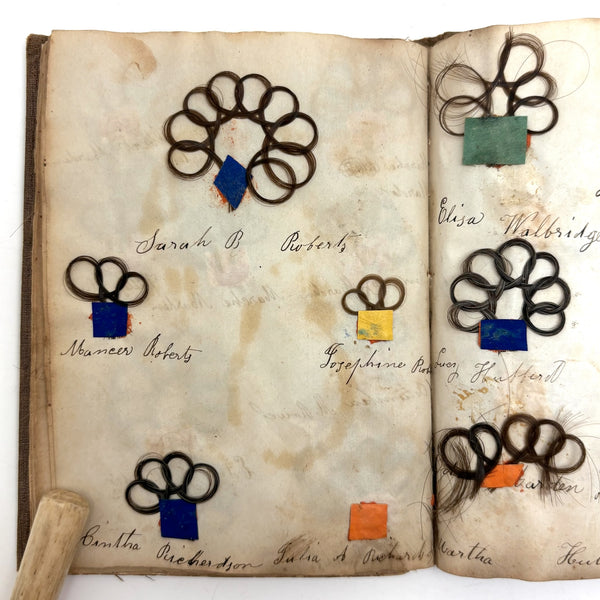 Sarah B Roberts
Mancer Roberts
Josephine Rob
Cintha Richerdson
Julia A Richards
Elisa Walbridge
Hufferd
Carden
Martha Hu